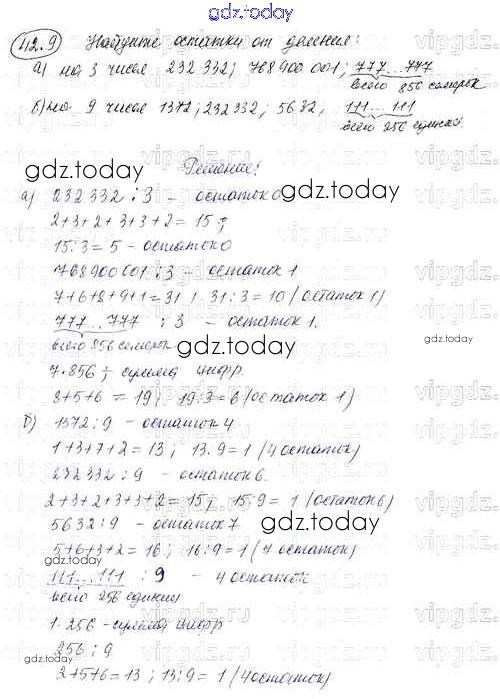 gdz.today
42.9 Найдите остатки от деления:
а) на 3 числа 232 332; 768 900 001; 777...777
всего 856 семерок
б) на 9 числа 1372; 232 332; 5632; 111... 111
всего 256 единиц
Решение:
gdz.today
gdz.today
а) 232332 : 3 - остаток 0
2+3+2+3+3+2= 15;
15:3= 5 - остаток 0
768900001 : 3 - остаток 1
7+6+8+9+1=31; 31:3=10 (остаток 1)
777...777 : 3 - остаток 1.
всего 856 семерок
gdz.today
gdz.today
7·856 - сумма цифр.
8+5+6 = 19; 19:3=6 (остаток 1)
б) 1372:9 - остаток 4
1+3+7+2=13; 13:9=1 (4 остаток)
232332 :9 - остаток 6.
2+3+2+3+3+2= 15; 15:9= 1 (остаток 6)
5632:9 - остаток 7
gdz.today
5+6+3+2= 16; 16:9=1 (7 остаток)
111...111 : 9 - 4 остаток
всего 256 единиц
1·256 - сумма цифр
256 : 9
gdz.today
2+5+6=13; 13:9= 1 (4 остаток)